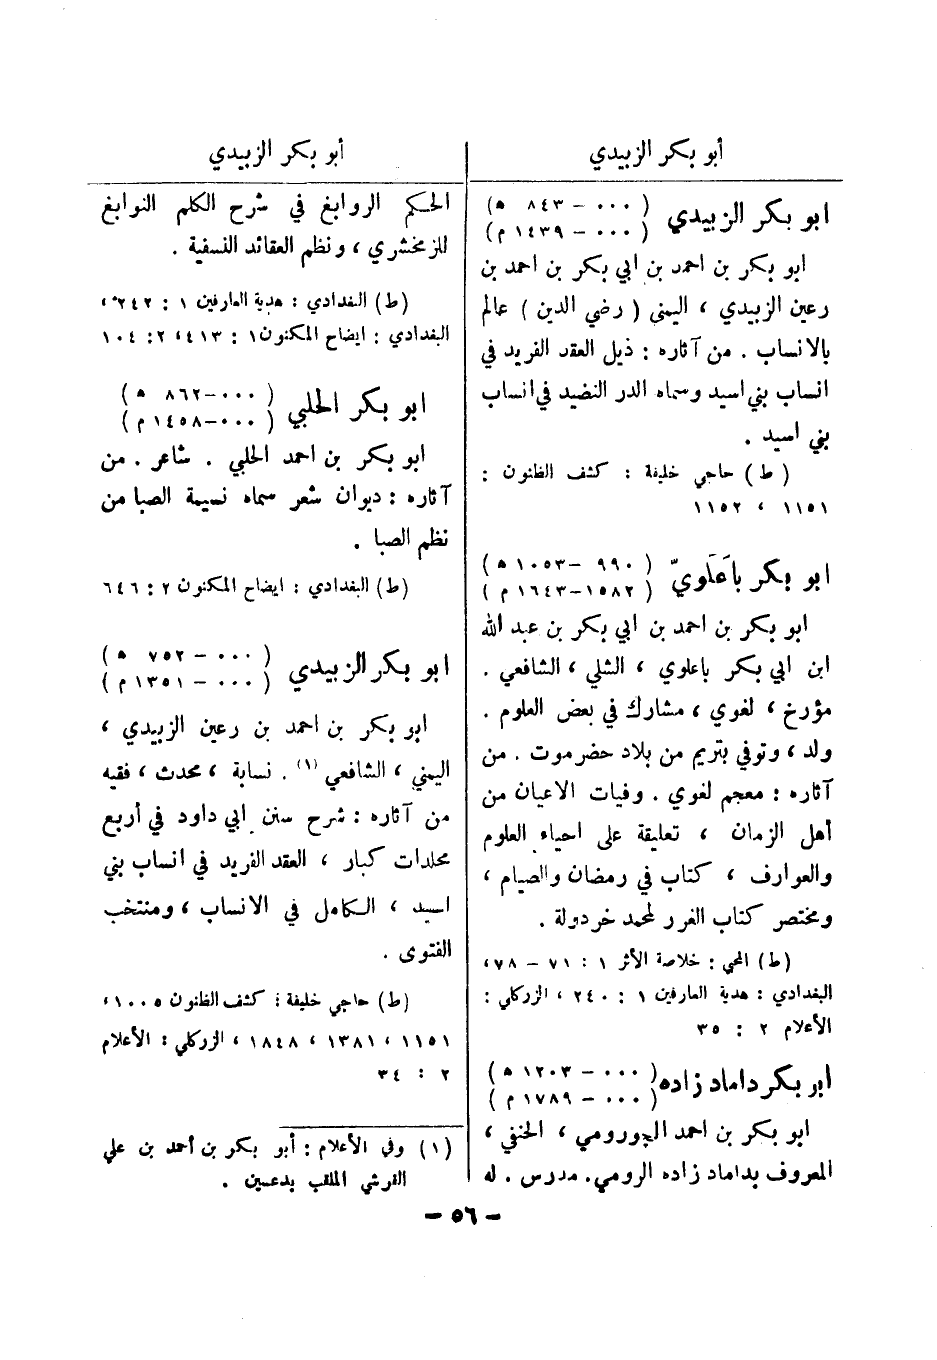 أبو بكر الزبيدي
ابو بكر الزبيدي (٠٠٠ - ٨٤٣ ه) (٠٠٠ - ١٤٣٩ م)
ابو بكر بن احمد بن ابي بكر بن احمد بن
رعين الزبيدي ، اليمني ( رضي الدين ) عالم
بالانساب . من آثاره : ذيل العقد الفريد في
انساب بني اسيد وسماه الدر النضيد في انساب
بني اسيد .
( ط ) حاجي خليفة : كشف الظنون :
١١٥١ ، ١١٥٢
ابو بكر باعَلَويّ (٩٩٠ - ١٠٥٣ ه) (١٥٨٢ - ١٦٤٣ م)
ابو بكر بن احمد بن ابي بكر بن عبد الله
ابن ابي بكر باعلوي ، الشلي ، الشافعي .
مؤرخ ، لغوي ، مشارك في بعض العلوم .
ولد ، وتوفي بتريم من بلاد حضرموت . من
آثاره : معجم لغوي . وفيات الاعيان من
أهل الزمان ، تعليقة على احياء العلوم
والعوارف ، كتاب في رمضان والصيام ،
ومختصر كتاب الغرر لمحمد خردولة .
(ط) المحبي : خلاصة الأثر ١ : ٧١ - ٧٨ ،
البغدادي : هدية العارفين ١ : ٢٤٠ ، الزركلي :
الأعلام ٢ : ٣٥
ابو بكر داماد زاده (٠٠٠ - ١٢٠٣ ه) (٠٠٠ - ١٧٨٩ م)
ابو بكر بن احمد الچورومي ، الحنفي ،
المعروف بداماد زاده الرومي . مدرس . له
أبو بكر الزبيدي
الحكم الروابغ في شرح الكلم النوابغ
للزمخشري ، ونظم العقائد النسفية .
(ط) البغدادي : هدية العارفين ١ : ٢٤٢ ،
البغدادي : ايضاح المكنون ١ : ٤١٣ ، ٢ : ١٠٤
ابو بكر الحلبي (٠٠٠ - ٨٦٢ ه) (٠٠٠ - ١٤٥٨ م)
ابو بكر بن احمد الحلبي . شاعر . من
آثاره : ديوان شعر سماه نسيمة الصبا من
نظم الصبا .
(ط) البغدادي : ايضاح المكنون ٢ : ٦٤٦
ابو بكر الزبيدي (٠٠٠ - ٧٥٢ ه) (٠٠٠ - ١٣٥١ م)
ابو بكر بن احمد بن رعين الزبيدي ،
اليمني ، الشافعي (١) . نسابة ، محدث ، فقيه
من آثاره : شرح سنن ابي داود في أربع
مجلدات كبار ، العقد الفريد في انساب بني
اسيد ، الكامل في الانساب ، ومنتخب
الفتوى .
(ط) حاجي خليفة : كشف الظنون ١٠٠٥ ،
١١٥١ ، ١٣٨١ ، ١٨٤٨ ، الزركلي : الأعلام
٢ : ٣٤
(١) وفي الأعلام : أبو بكر بن أحمد بن علي
القرشي الملقب بدعسين .
- ٥٦ -